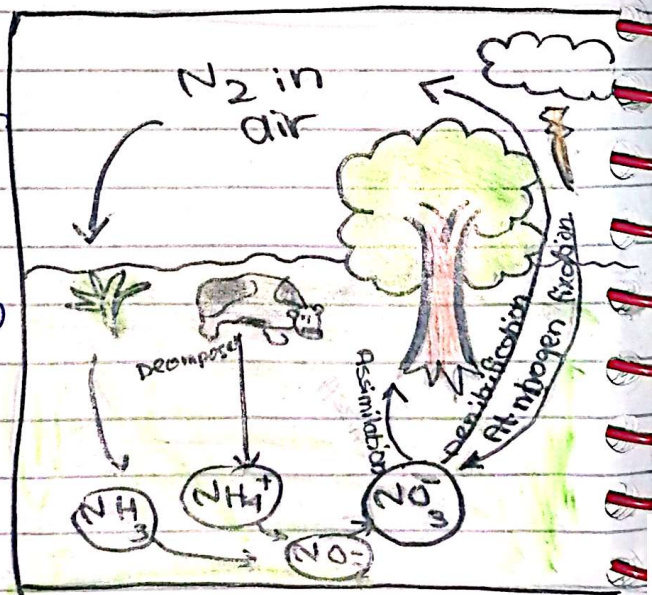 N2 in
air
Decomposer
Assimilation
Denitrification
At. nitrogen fixation
NH3
NH4+
NO3-
NO-